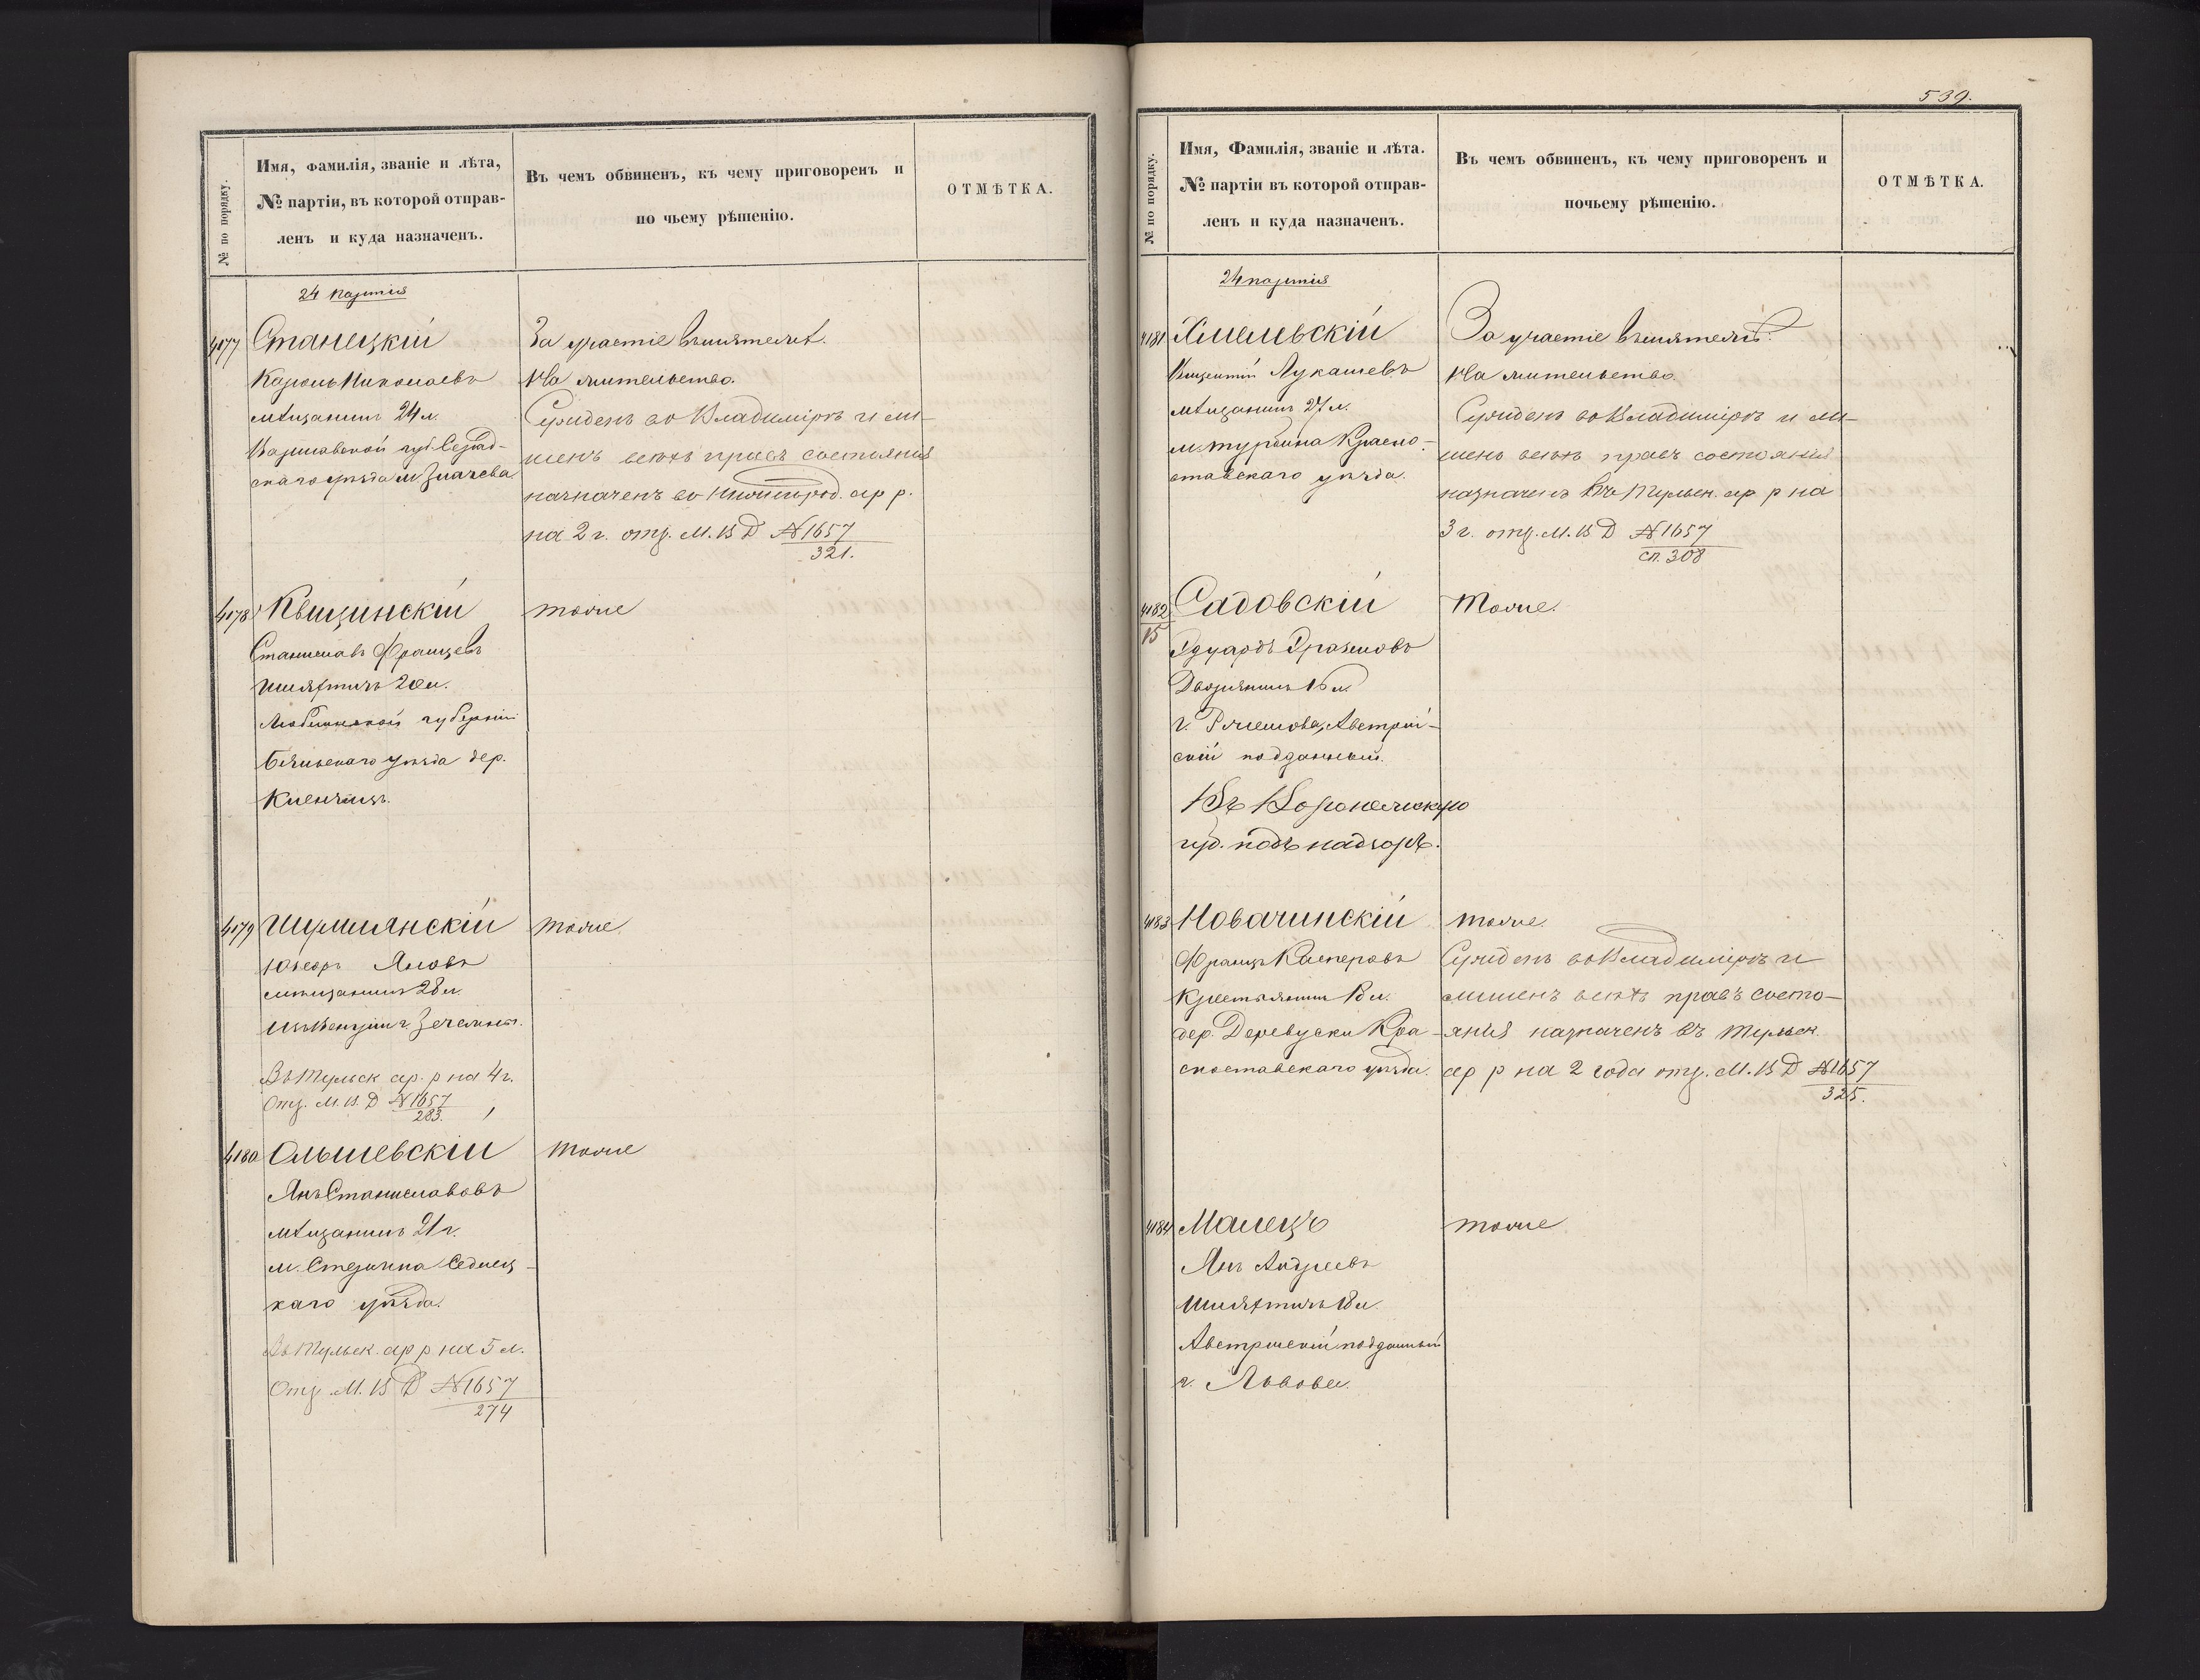 539.
№ по порядку.
Имя, фамилія, званіе и лѣта,
№ партіи, въ которой отправ-
ленъ и куда назначенъ.
Въ чемъ обвиненъ, къ чему приговоренъ и
по чьему рѣшенію.
ОТМѢТКА.
24 партія
4177
Станецкій
Кароль Николаевъ
мѣщанинъ 24 л.
Варшавской губ.
скаго уѣзда м.
За участіе въ мятежѣ.
На жительство.
Сужденъ во Владимірѣ и ли-
шенъ всѣхъ правъ состоянія
назначенъ во Нижегород. ар р.
на 2 г. отц. М. В Д №1657
321.
4178
Квицинскій
Станиславъ Францевъ
Шляхтичъ 20 л.
Люблинской губерніи
Бѣльскаго уѣзда дер.
тоже
4179
Яновъ
мѣщанинъ 28 л.
Въ Тульск ар. р на 4 г.
Отц. М. В. Д №1657
283.
тоже
4180
Ольшевскій
Янъ Станиславовъ
мѣщанинъ 21 г.
м. Стежина Седлец-
каго уѣзда.
Въ Тульск. ар р на 5 л.
Отц. М. В Д №1657
274
тоже
№ по порядку.
Имя, Фамилія, званіе и лѣта.
№ партіи въ которой отправ-
ленъ и куда назначенъ.
Въ чемъ обвиненъ, къ чему приговоренъ и
почьему рѣшенію.
ОТМѢТКА.
24 партія
4181
Хмелевскій
Викентій Лукашевъ
мѣщанинъ 27 л.
м. Турбина Красно-
ставскаго уѣзда.
За участіе въ мятежѣ.
На жительство.
Сужденъ во Владимірѣ и ли-
шенъ всѣхъ правъ состоянія
назначенъ въ Тульск. ар р на
3 г. отц. М. В Д №1657
сп. 308
4182
15
Садовскій
Эдуардъ Эразмовъ
Дворянинъ 16 л.
г. Ржешова, Австрій-
скій подданный.
Въ Воронежскую
губ. подъ надзоръ.
Тоже.
4183
Новачинскій
Францъ Касперовъ
Крестьянинъ 18 л.
дер. Кра-
сноставскаго уѣзда.
тоже.
Сужденъ во Владимірѣ и
лишенъ всѣхъ правъ состо-
янія назначенъ въ Тульск
ар р на 2 года отц. М. В Д №1657
325.
4184
Малецъ
Янъ Андреевъ
Шляхтичъ 18 л.
Австрійскій подданный
г. Львова.
тоже